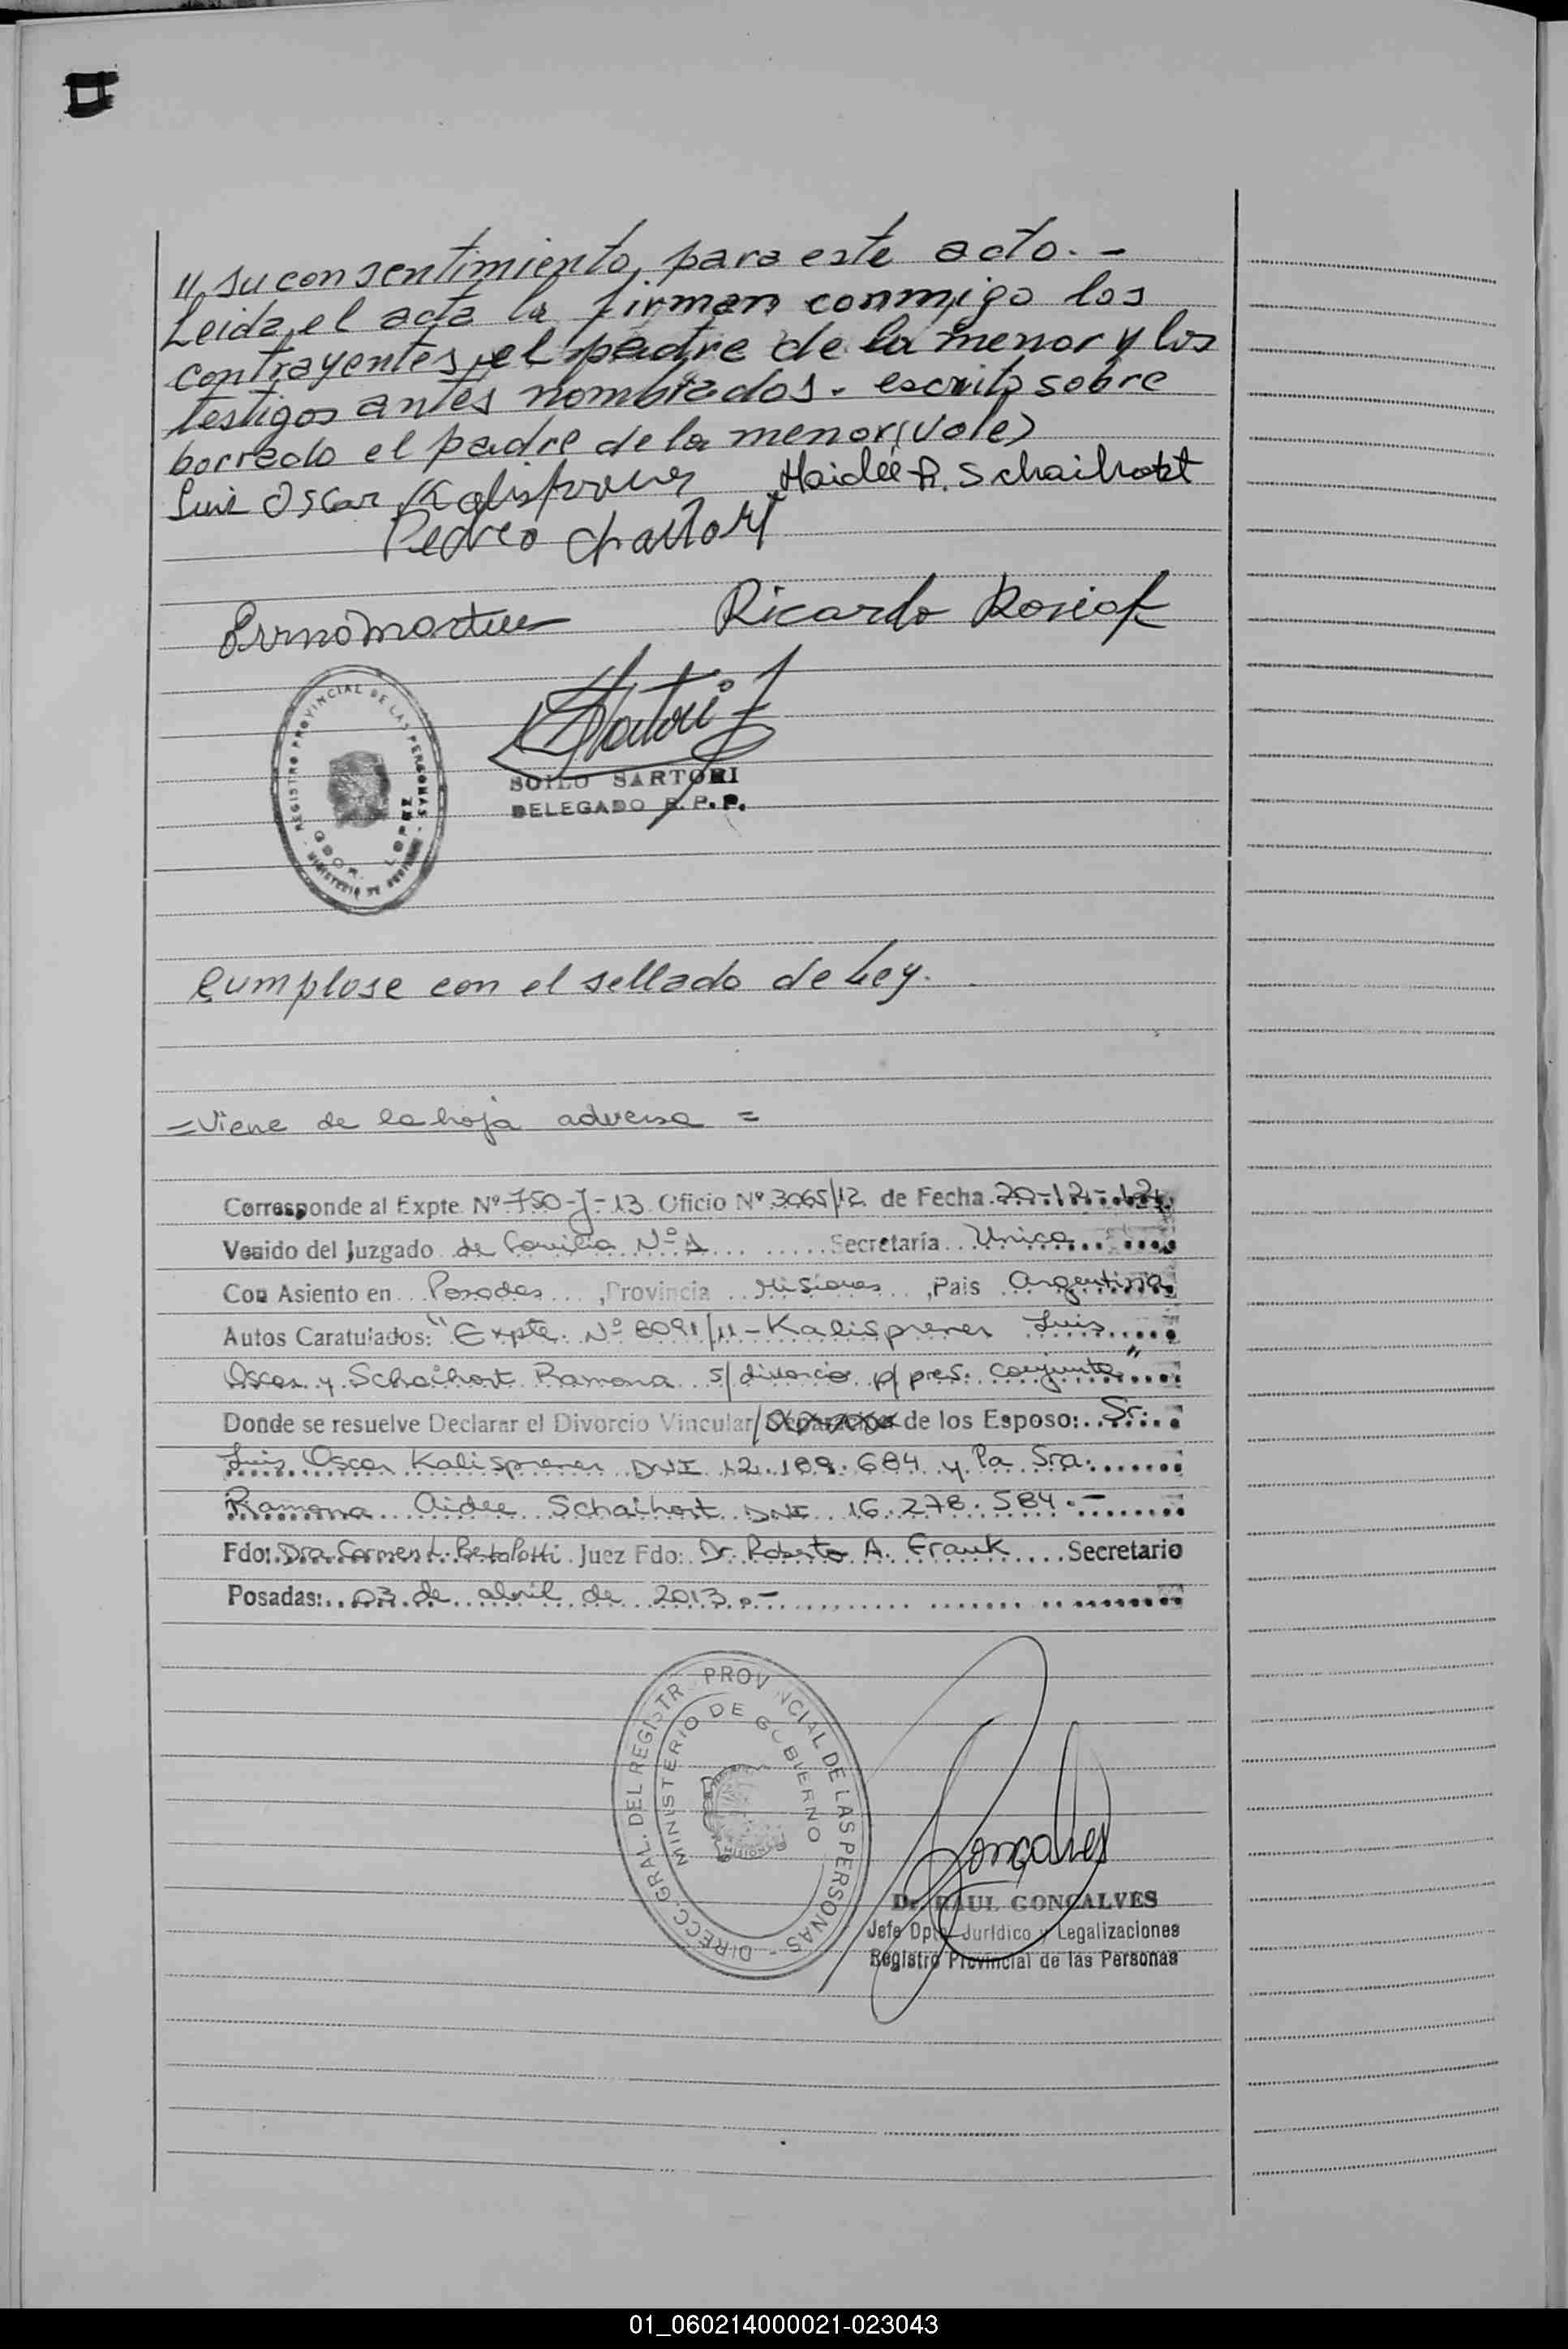 " su consentimiento, para este acto. -
Leida, el acta la firman conmigo los
contrayentes, el padre de la menor y los
testigos antes nombrados. escrito sobre
borrado el padre de la menor (Vale)
Luis Oscar Kalisprener Haideé R. Schaihort
Pedro
Ricardo
REGISTRO PROVINCIAL DE LAS PERSONAS
GDOR. LOPEZ
MINISTERIO DE GOBIERNO
Sartori
SOILO SARTORI
DELEGADO R. P. P.
Cumplase con el sellado de Ley.
= Viene de la hoja adversa =
Corresponde al Expte. Nº 750-J-13. Oficio Nº 3065/12 de Fecha 20-12-12
Venido del Juzgado de Familia Nº 1 Secretaría Unica
Con Asiento en Posadas, Provincia Misiones, Pais Argentina
Autos Caratulados: "Expte. Nº 8091/11 - Kalisprener Luis
Oscar y Schaihort Ramona s/ divorcio p/ pres. conjunta"
Donde se resuelve Declarar el Divorcio Vincular/ de los Esposo: Sr.
Luis Oscar Kalisprener DNI 12.189.684 y la Sra.
Ramona Aidee Schaihort DNI 16.278.584.-
Fdo: Dra. Carmen L. Bertolotti Juez Fdo: Dr. Roberto A. Frank Secretario
Posadas: 03 de abril de 2013.-
DIRECC. GRAL. DEL REGISTR PROVINCIAL DE LAS PERSONAS
MINISTERIO DE GOBIERNO
MISIONES
Gonçalves
Dr. RAUL GONCALVES
Jefe Dpto. Jurídico y Legalizaciones
Registro Provincial de las Personas
01_060214000021-023043